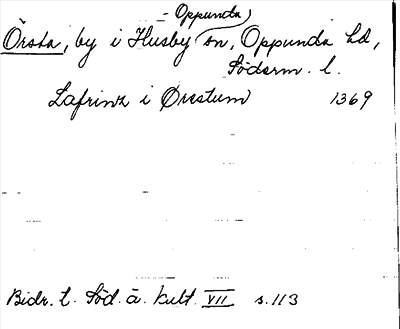 - Oppunda)
Örsta, by i Husby sn, Oppunda hd,
Söderm. l.
Lafrinz i Ørestum 1369
Bidr. t. Söd. ä. kult. VII s. 113